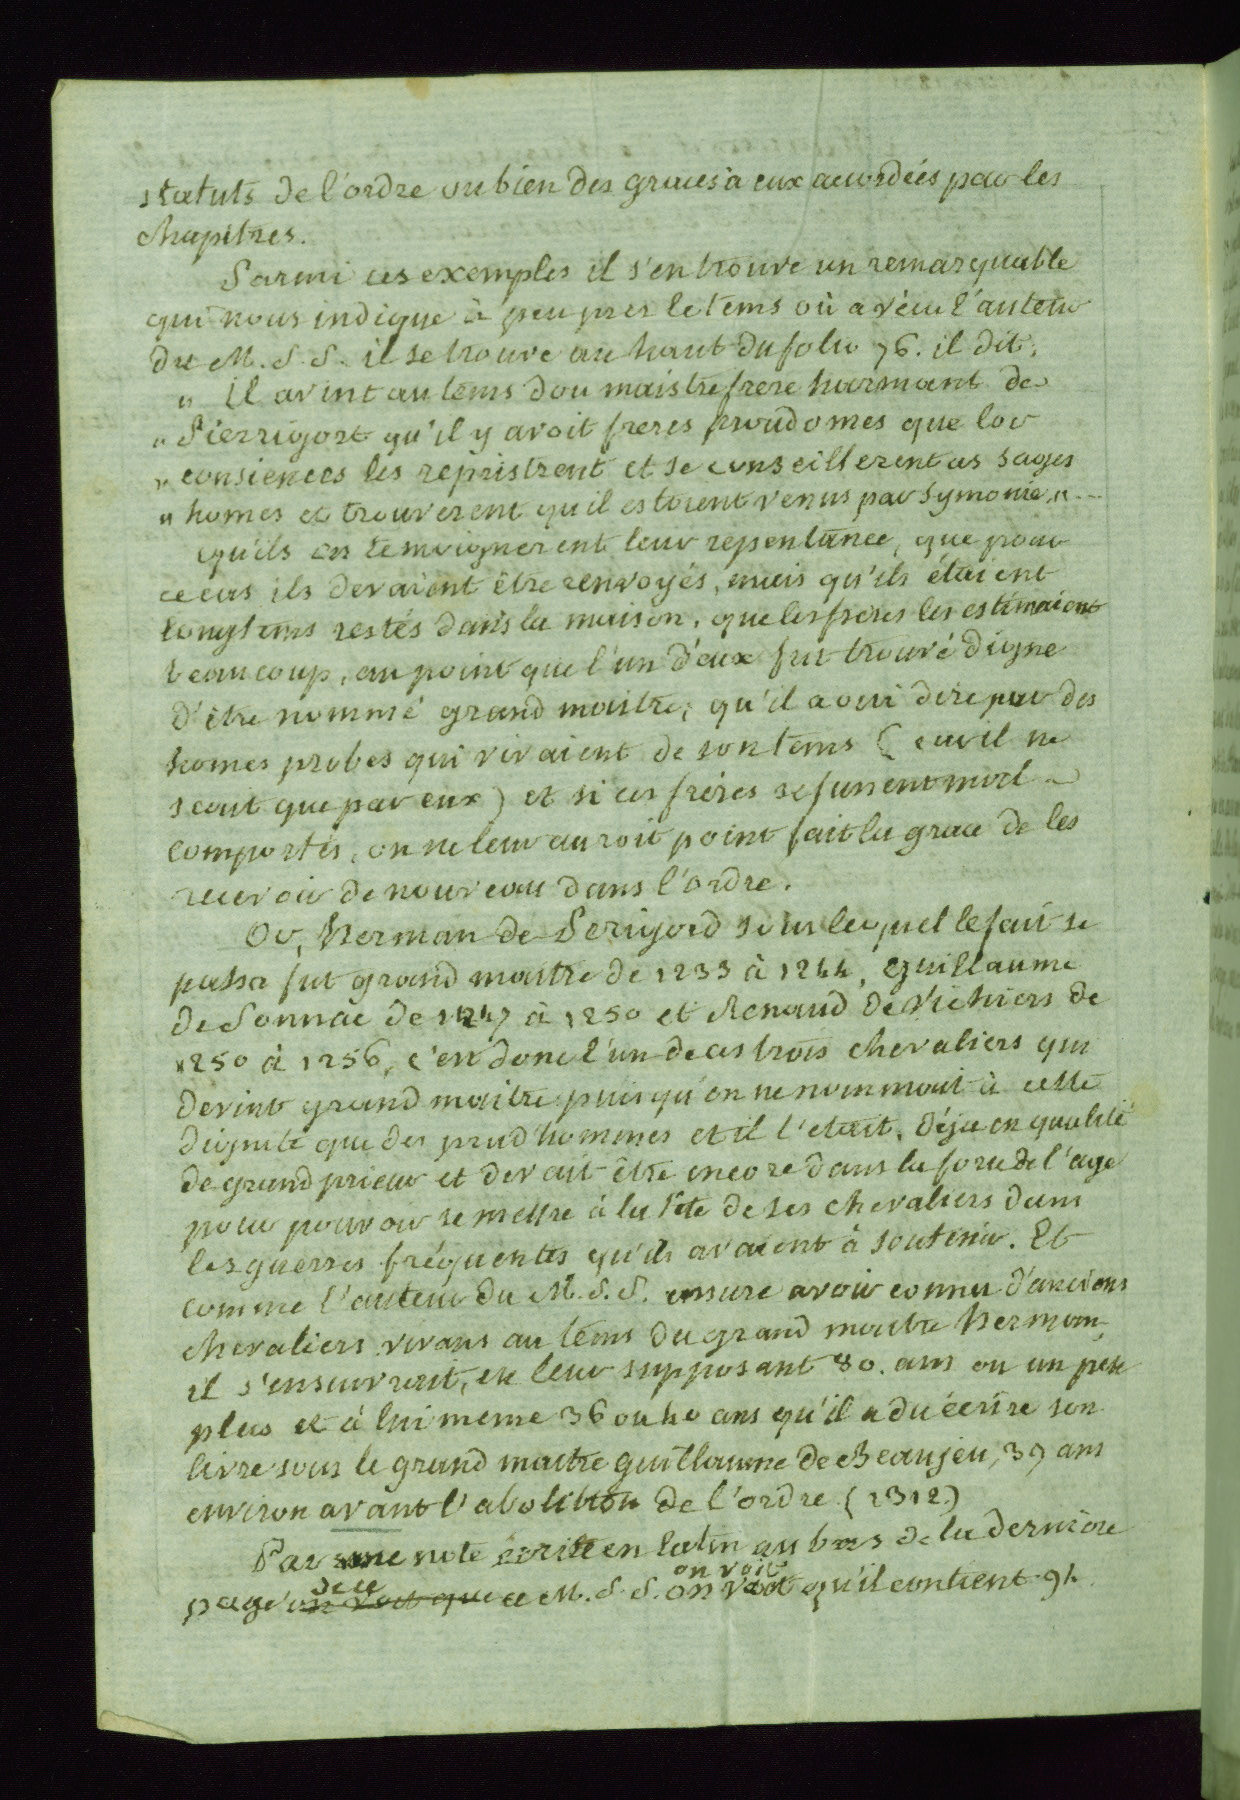 statuts de l'ordre ou bien des graces à eux accordées par les
chapitres.
Parmi ces exemples il s'en trouve un remarquable
qui nous indique à peu pres le tems où a vécu l'auteur
du M.S.S. il se trouve au haut du folio 76. il dit,
" Il avint au tems dou maistre frere harmant de
" Pierrigort qu'il y avoit freres proudomes que lor
" consiences les repristrent et se conseillerent as sages
" homes et trouverent qu'il estoient venus par symonie "...
qu'ils en temoignerent leur repentance, que pour
ce cas ils devaient être renvoyés, mais qu'ils étaient
longtems restés dans la maison, que les freres les estimaient
beaucoup, au point que l'un d'eux fut trouvé digne
d'être nommé grand maitre; qu'il a oui dire par des
homes probes qui vivaient de son tems (car il ne
scait que par eux) et si ces fréres se fussent mal
comportés, on ne leur auroit point fait la grace de les
recevoir de nouveau dans l'ordre.
Or, Herman de Perigord sous lequel le fait se
passa fut grand maitre de 1233 à 1244, Guillaume
de Sonnac de 1247 à 1250 et Renaud de Vichiers de
1250 à 1256, c'est donc l'un de ces trois chevaliers qui
devint grand maitre puisqu'on ne nommait à cette
dignité que des prud'hommes et il l'etait déja en qualité
de grand prieur et devait être encore dans la force de l'age
pour pouvoir se mettre à la tête de ses chevaliers dans
les guerres fréquentes qu'ils avaient à soutenir. Et
comme l'auteur du M.S.S. assure avoir connu d'anciens
chevaliers vivans au tems du grand maitre Herman,
il s'ensuivroit, en leur supposant 80. ans ou un peu
plus et à lui meme 36 ou 40 ans qu'il a du écrire son
livre sous le grand maitre guillaume de Beaujeu, 39 ans
environ avant l'abolition de l'ordre (1312.)
Par une note écrite en latin au bas de la derniere
de ce on voit
page on voit que ce M.S.S. on voit qu'il contient 94